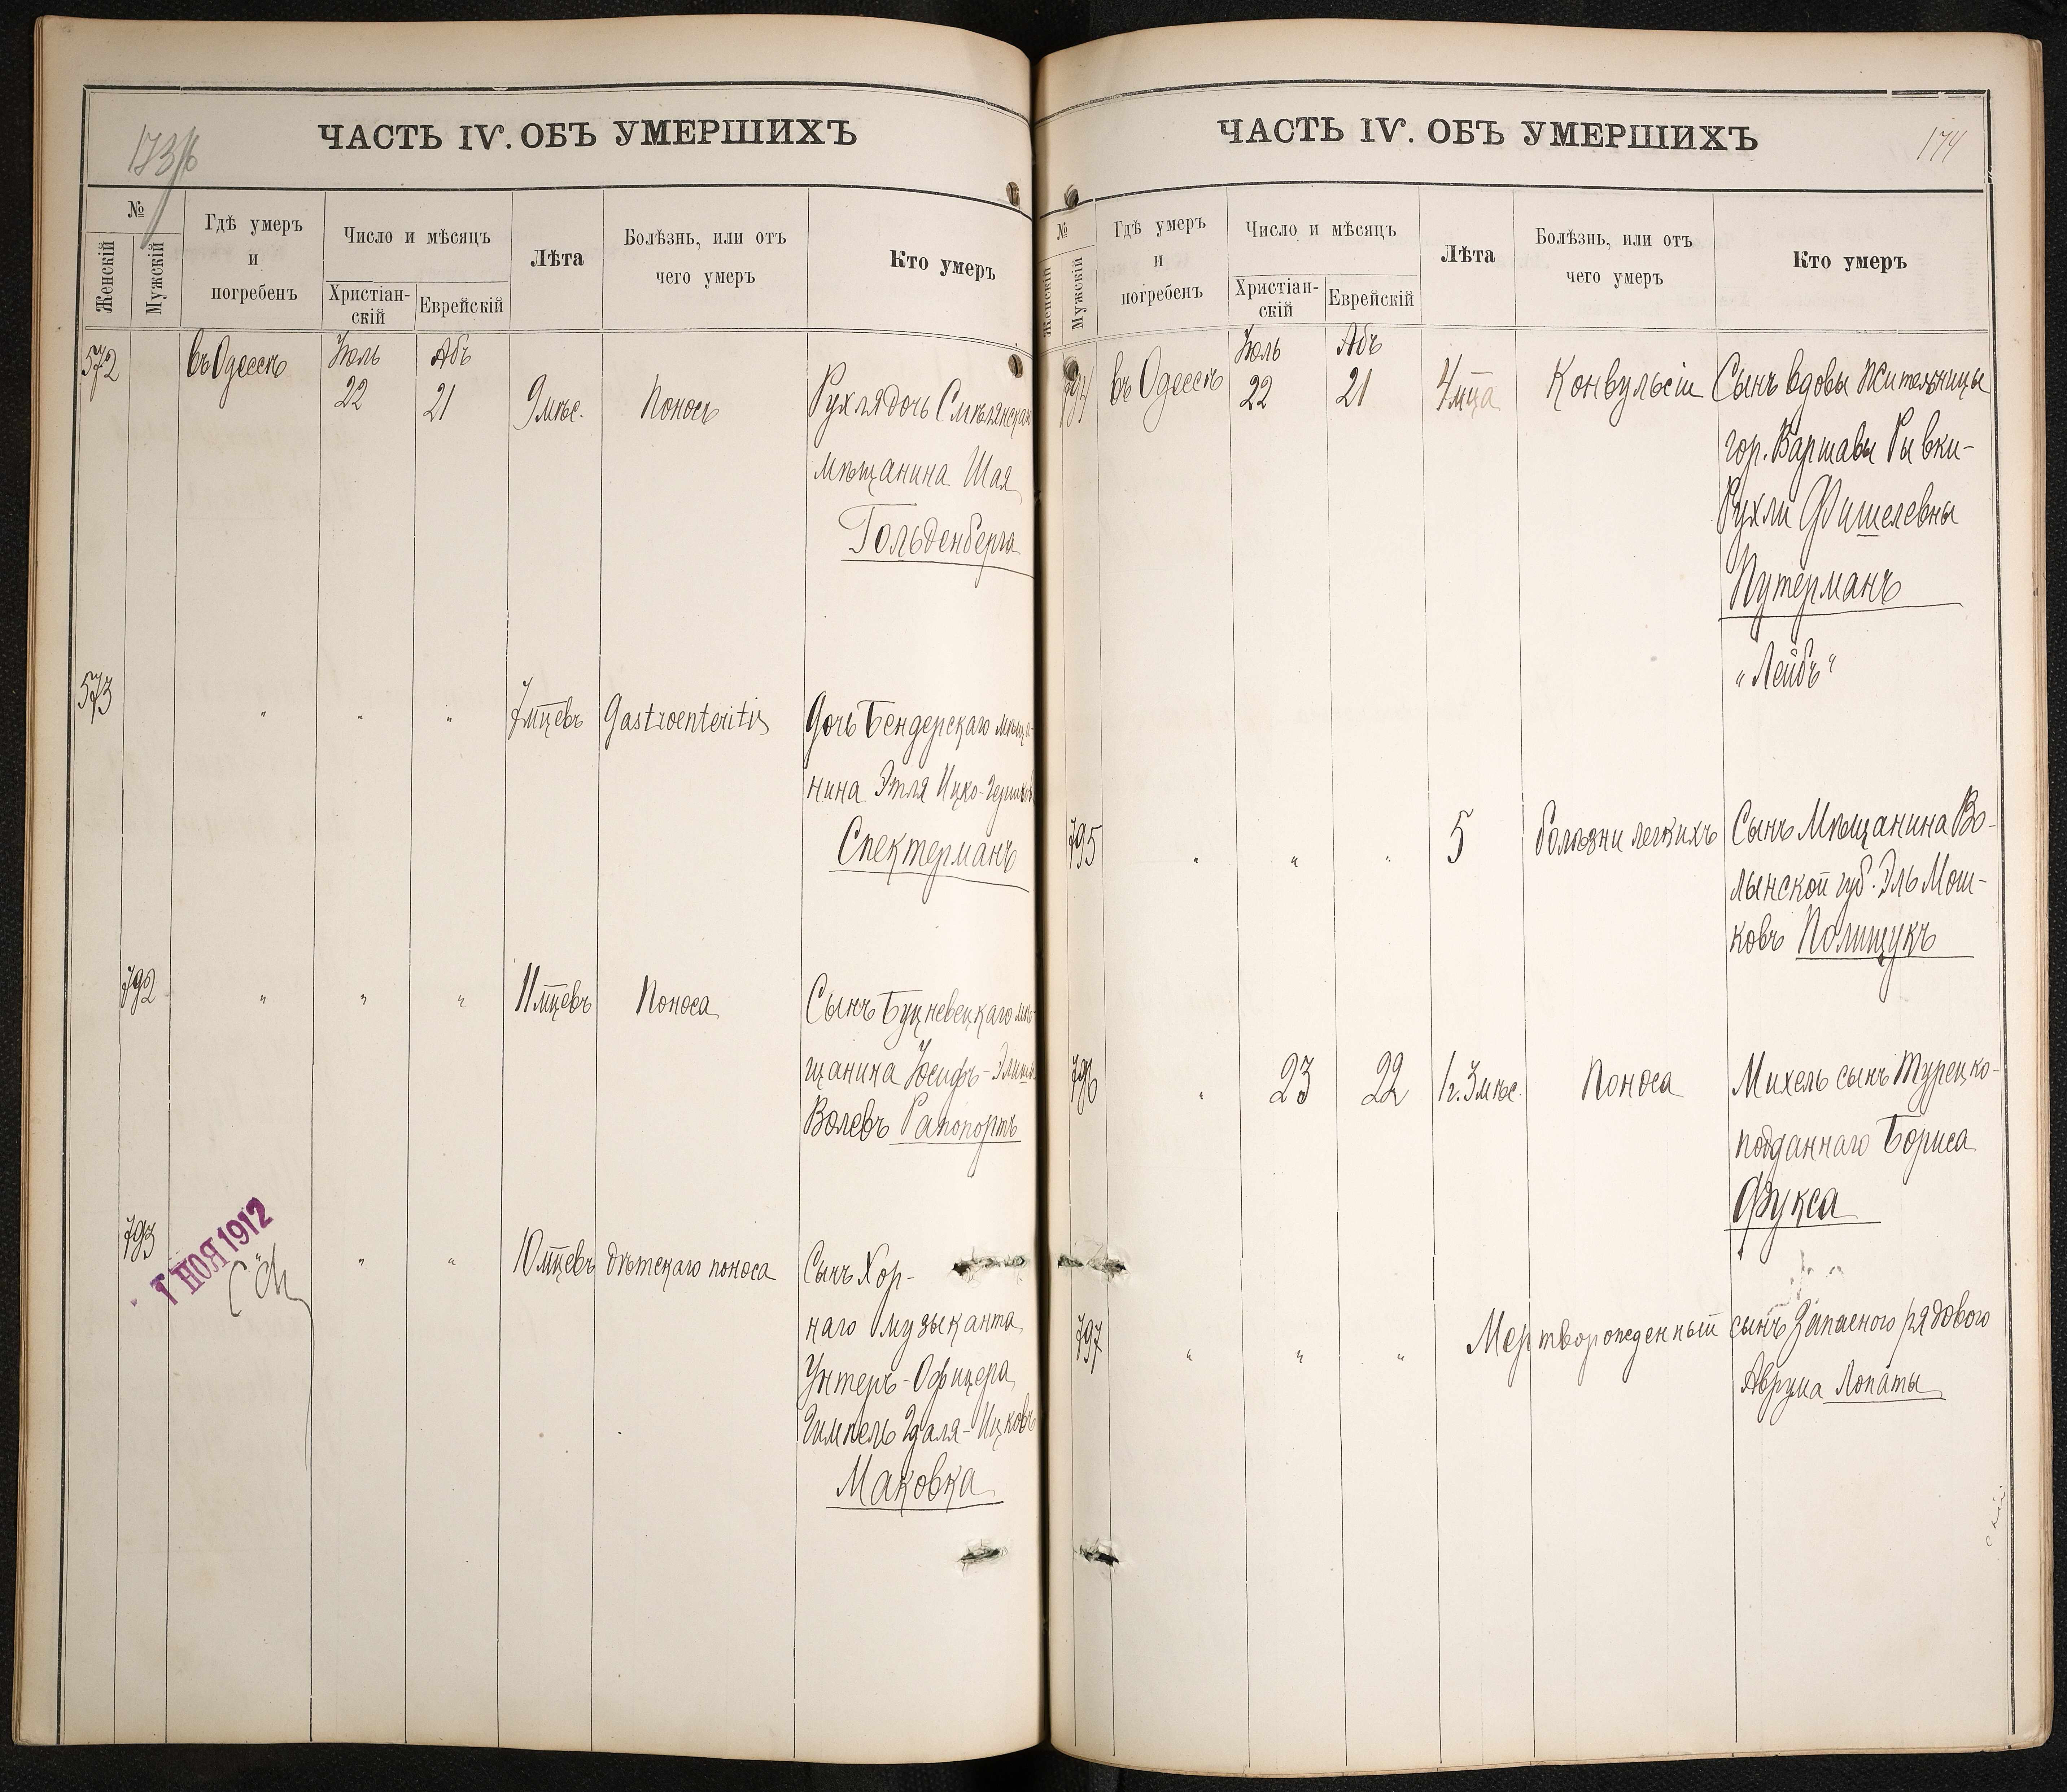 173/б
ЧАСТЬ IV. ОБЪ УМЕРШИХЪ
№
Женскій
Мужскій
Гдѣ умеръ
и
погребенъ
Число и мѣсяцъ
Христіан-
скій
Еврейскій
Лѣта
Болѣзнь, или отъ
чего умеръ
Кто умеръ
572
въ Одессѣ
Іюль
22
Абъ
21
9 мѣс.
Поносъ
Рухля дочь Смѣлянскаго
мѣщанина Шая
Гольденберга
573
" " "
7 мцевъ
Gastroenteritis
Дочь Бендерскаго мѣща-
нина Этля Ицко-Гершков
Спектерманъ
792
" " "
11 мцевъ
Поноса
Сынъ Буцневецкаго мѣ-
щанина Іосифъ-
Волевъ Рапопортъ
793
" " "
10 мцевъ
дѣтскаго поноса
Сынъ Хор-
наго музыканта
Унтеръ-Офицера
Гимпель Гдаля-Ицковъ
Маковка
1 НОЯ 1912
ЧАСТЬ IV. ОБЪ УМЕРШИХЪ
174
№
Женскій
Мужскій
Гдѣ умеръ
и
погребенъ
Число и мѣсяцъ
Христіан-
скій
Еврейскій
Лѣта
Болѣзнь, или отъ
чего умеръ
Кто умеръ
794
въ Одессѣ
Іюль
22
Абъ
21
4 мца
Конвульсіи
Сынъ вдовы Жительницы
гор. Варшавы Рывки-
Рухли Фишелевны
Путерманъ
"Лейбъ"
795
" " "
5
болѣзни легкихъ
Сынъ Мѣщанина Во-
лынской губ. Эль Мош-
ковъ Полищукъ
796
"
23
22
1 г. 3 мѣс.
Поноса
Михель сынъ Турецко-
подданнаго Бориса
Фукса
797
" " "
Мертворожденный сынъ Запасного рядового
Аврума Лопаты